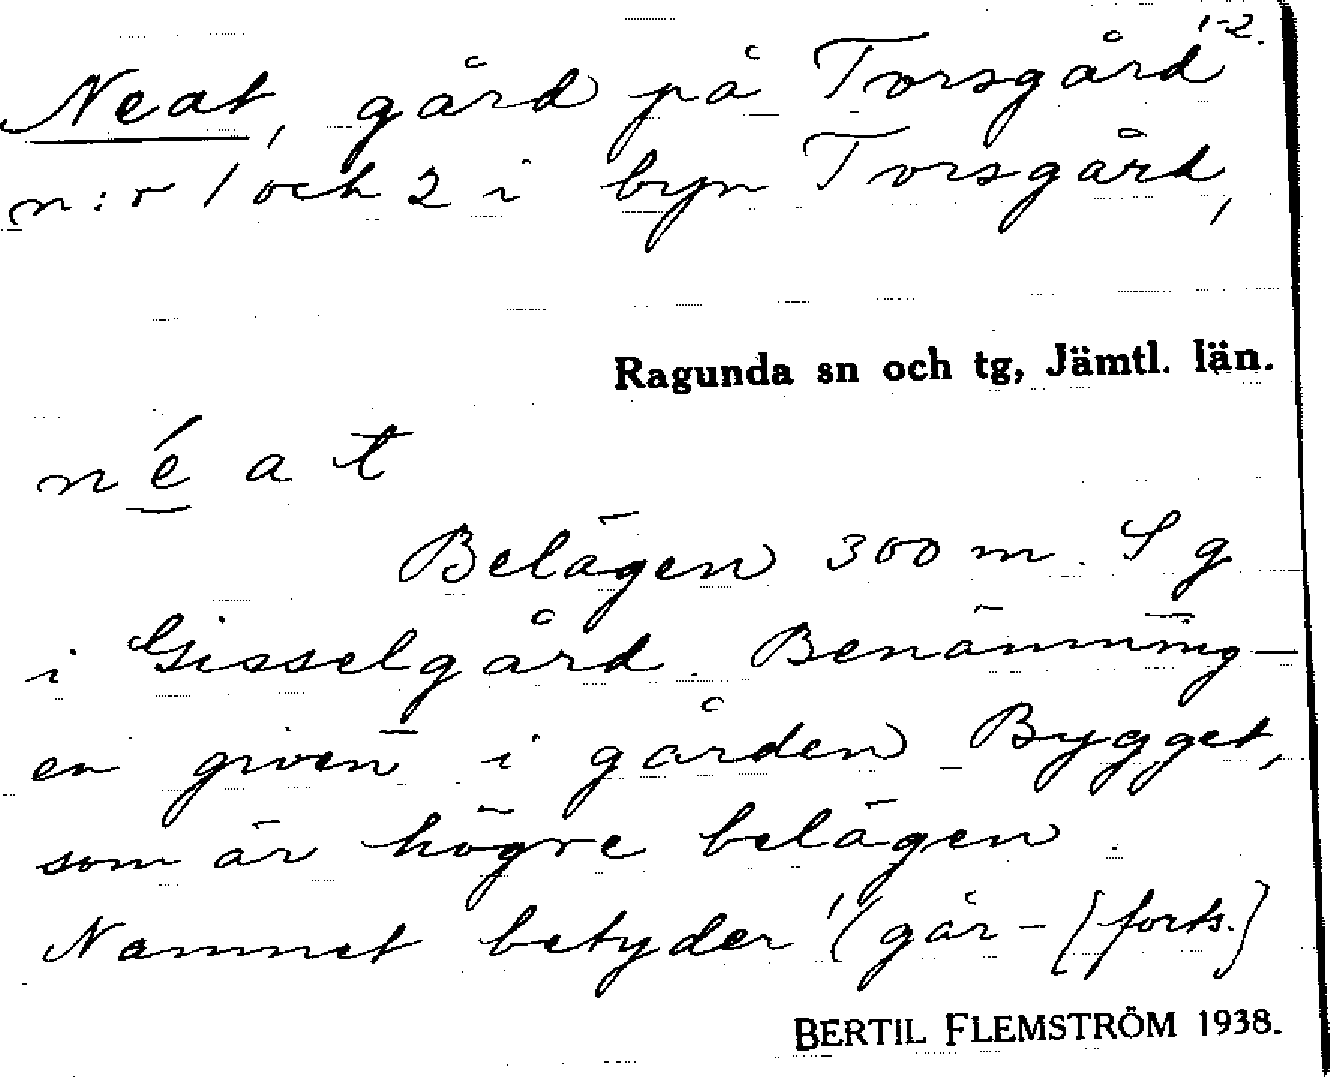 1-2.
Neat, gård på Torsgård
n:r 1 och 2 i byn Torsgård,
Ragunda sn och tg, Jämtl. län.
néat
Belägen 300 m. S g
i Gisselgård. Benämning-
en given i gården Bygget,
som är högre belägen.
Namnet betyder '(går- [forts.]
BERTIL FLEMSTRÖM 1938.